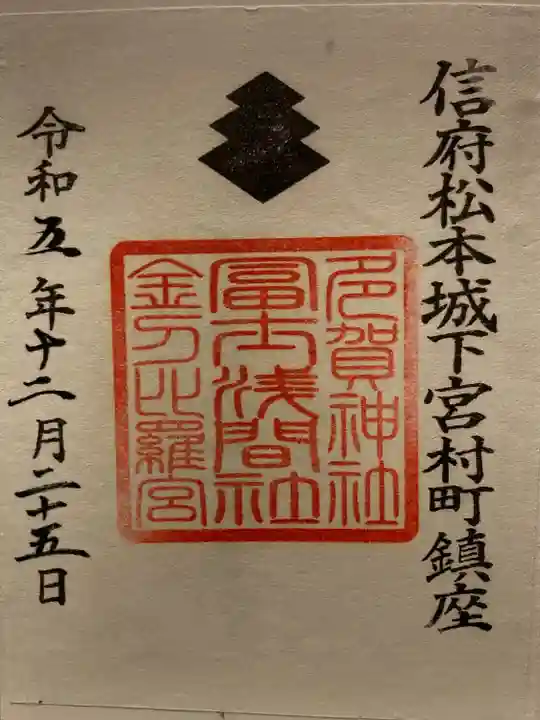 信府松本城下宮村町鎮座
多賀神社
冨士浅間社
金刀比羅宮
令和五年十二月二十五日